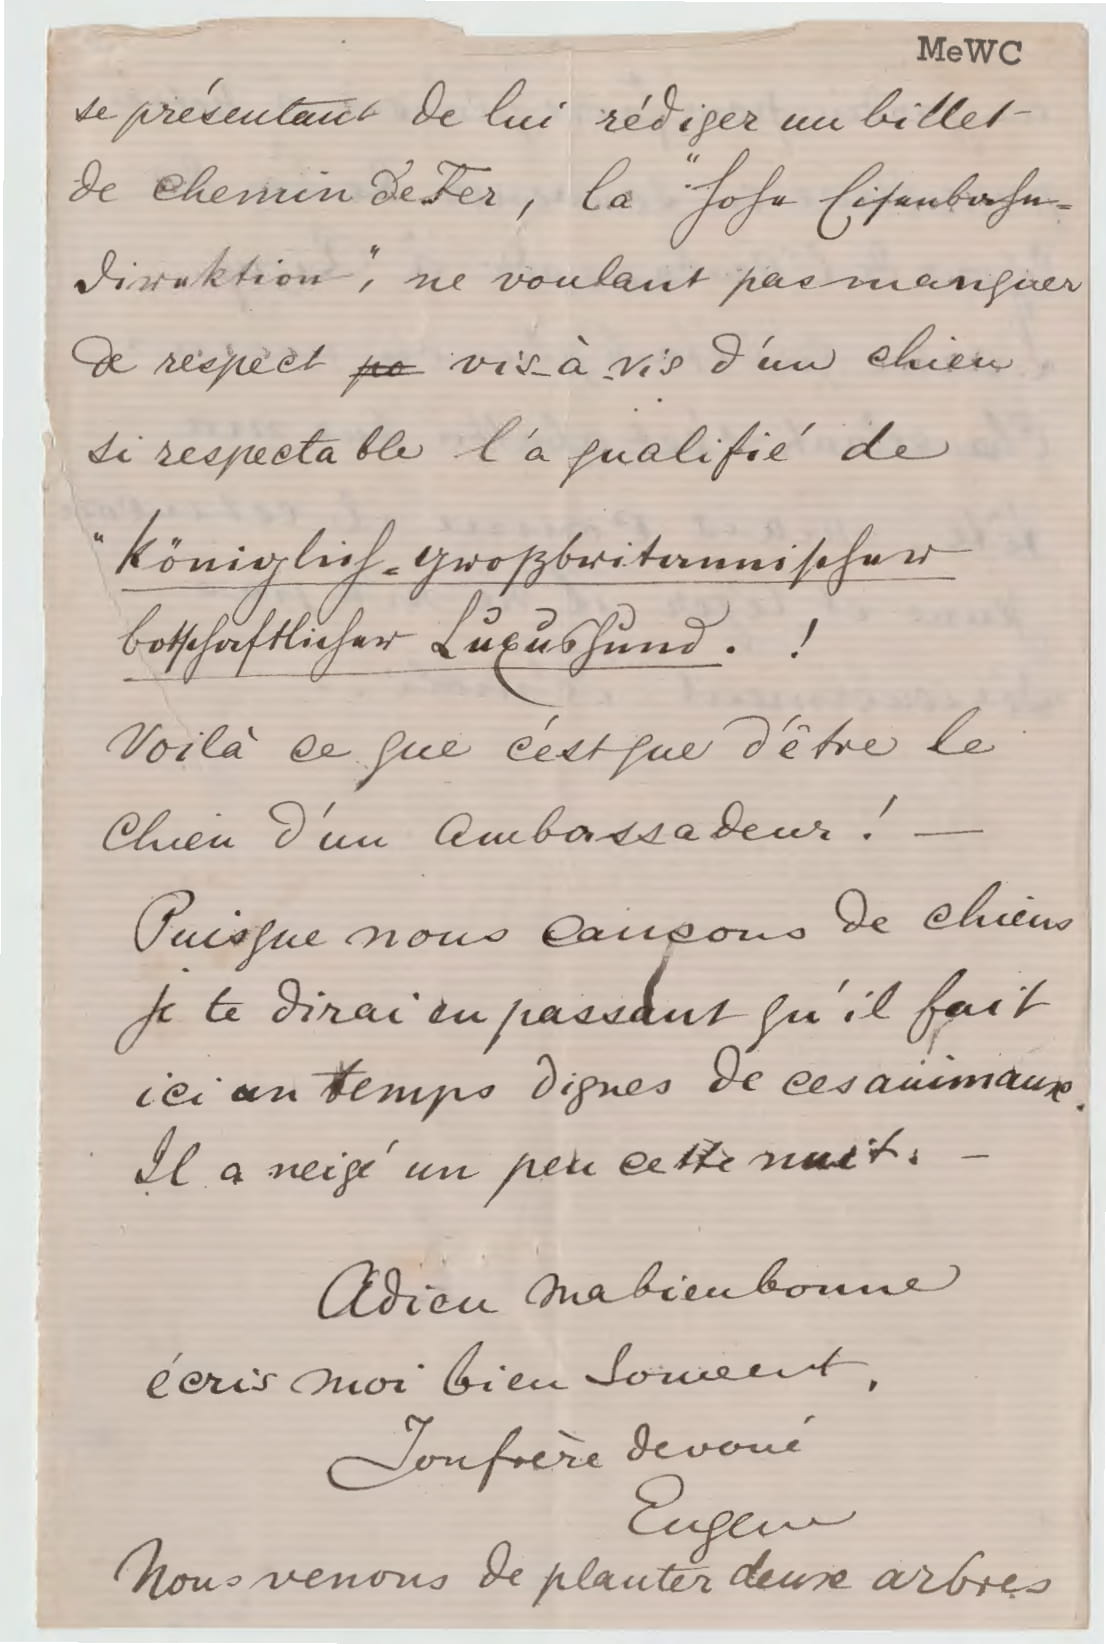 MeWC
se présentant de lui rédiger un billet
de chemin de Fer, la "hohe Eisenbahn=
direktion", ne voulant pas manquer
de respect po vis-à-vis d'un chien
si respectable l'a qualifié de
"Königlich=Großbritannischer
botschaftlicher Luxushund. !
Voilà ce que c'est que d'être le
Chien d'un Ambassadeur! —
Puisque nous causons de chiens
je te dirai en passant qu'il fait
ici un temps dignes de ces animaux.
Il a neigé un peu cette nuit. —
Adieu ma bien bonne
écris moi bien souvent.
Ton frère devoué
Eugène
Nous venons de planter deux arbres